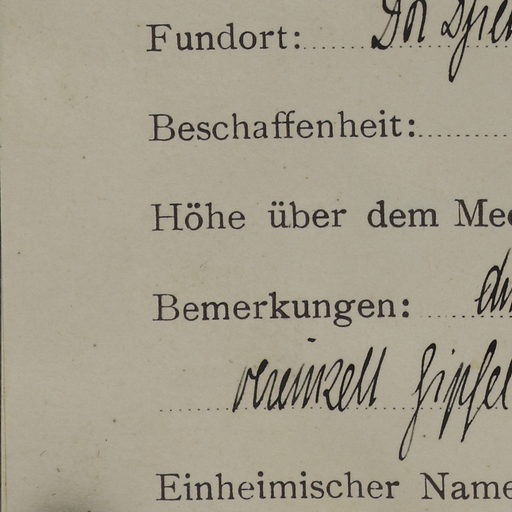 Fundort:
Beschaffenheit:
Höhe über dem Mee
Bemerkungen:
vereinzelt Gipfel
Einheimischer Name